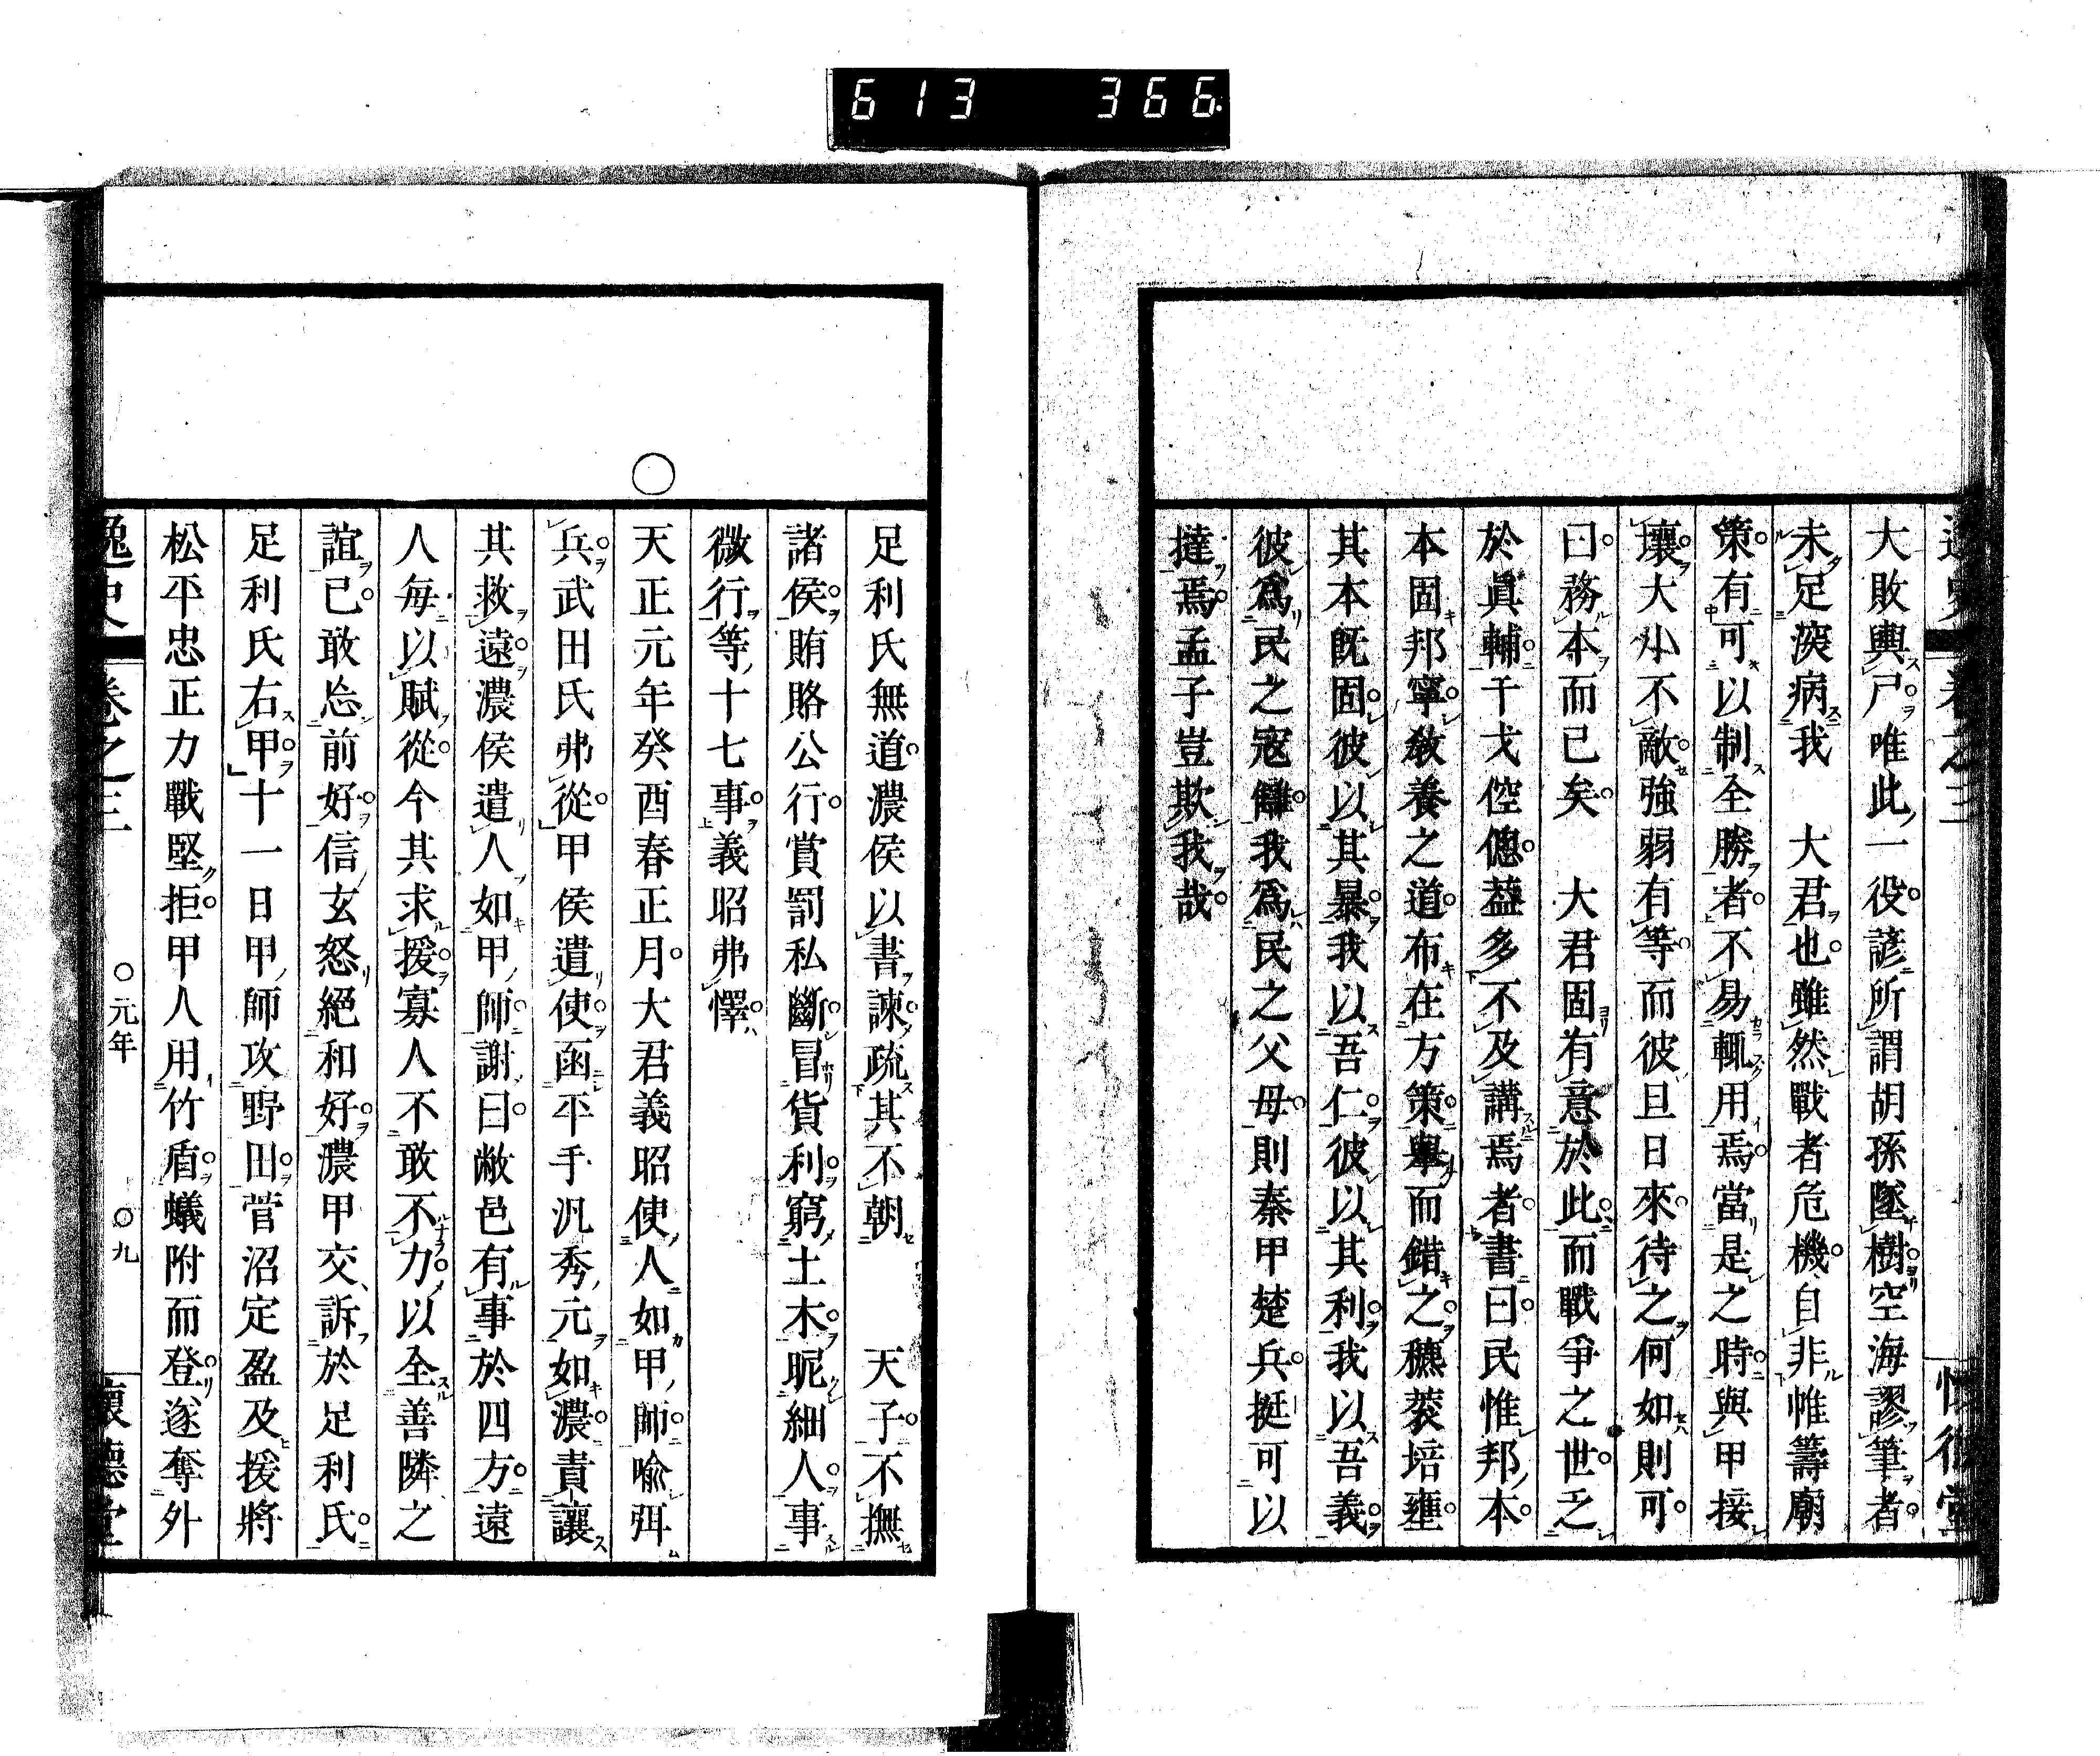 613 366
大敗輿尸唯此一役諺所謂胡孫墜樹空海謬筆者
未足深病我 大君也雖然戰者危機自非帷籌廟
策有可以制全勝者不易輒用焉當是之時與甲接
壤大小不敵強弱有等而彼旦日來待之何如則可
曰務本而已矣 大君固有意於此而戰爭之世乏
於眞輔干戈倥傯葢多不及講焉者書曰民惟邦本
本固邦寧敎養之道布在方策舉而錯之穮蔉培壅
其本旣固彼以其暴我以吾仁彼以其利我以吾義
彼爲民之寇讎我爲民之父母則秦甲楚兵挺可以
撻焉孟子豈欺我哉
足利氏無道濃侯以書諫疏其不朝 天子不撫
諸侯賄賂公行賞罰私斷冒貨利窮土木昵細人事
微行等十七事義昭弗懌
○
天正元年癸酉春正月大君義昭使人如甲師喩弭
兵武田氏弗從甲侯遣使函平手汎秀元如濃責讓
其救遠濃侯遣人如甲師謝曰敝邑有事於四方遠
人每以賦從今其求援寡人不敢不力以全善隣之
誼已敢忘前好信玄怒絕和好濃甲交訴於足利氏
足利氏右甲十一日甲師攻野田菅沼定盈及援將
松平忠正力戰堅拒甲人用竹盾蟻附而登遂奪外
逸史 卷之三 ○元年 ○九 懷德堂